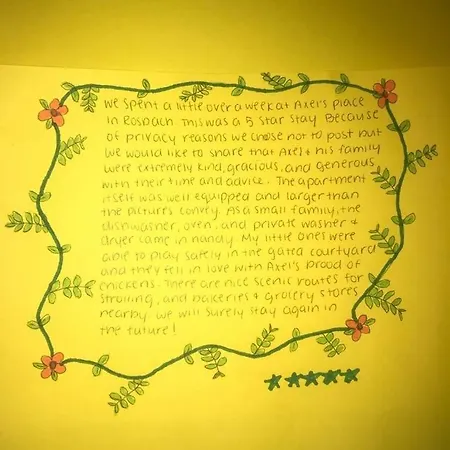 We spent a little over a week at Axel's place
in Rosbach. This was a 5 star stay. Because
of privacy reasons we chose not to post but
we would like to share that Axel + his family
were extremely kind, gracious, and generous
with their time and advice. The apartment
itself was well equipped and larger than
the pictures convey. As a small family, the
dishwasher, oven, and private washer +
dryer came in handy. My little ones were
able to play safely in the gated courtyard
and they fell in love with Axel's brood of
chickens. There are nice scenic routes for
strolling, and bakeries + grocery stores
nearby. We will surely stay again in
the future!